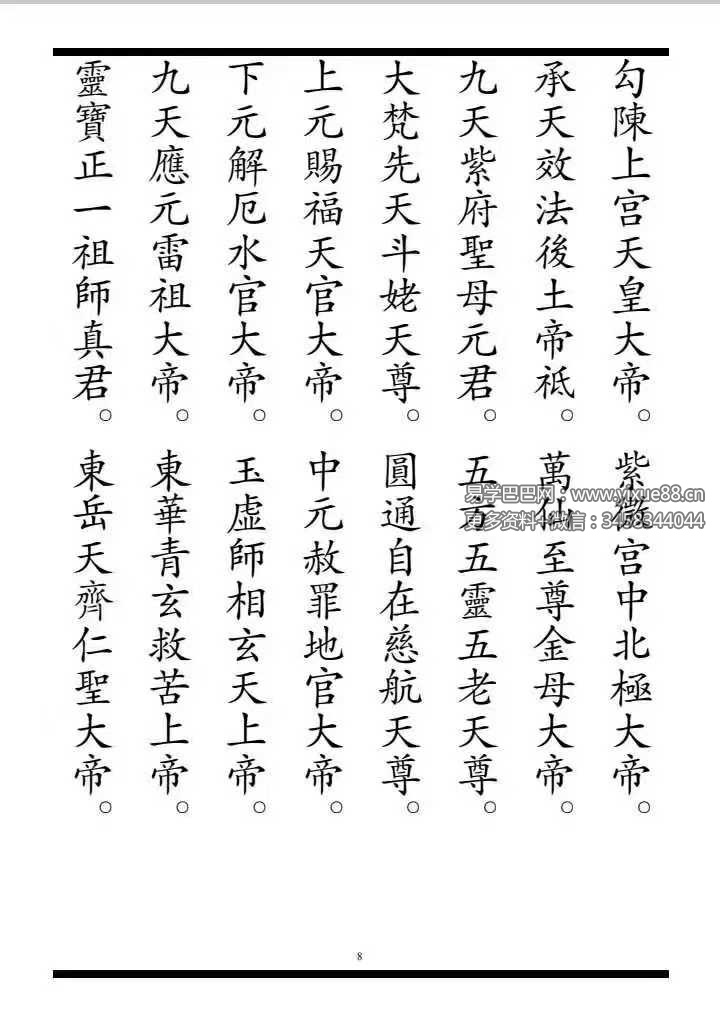 勾陳上宮天皇大帝。
紫微宮中北極大帝。
承天效法後土帝祇。
萬仙至尊金母大帝。
九天紫府聖母元君。
五方五靈五老天尊。
大梵先天斗姥天尊。
圓通自在慈航天尊。
上元賜福天官大帝。
中元赦罪地官大帝。
下元解厄水官大帝。
玉虛師相玄天上帝。
九天應元雷祖大帝。
東華青玄救苦上帝。
靈寶正一祖師真君。
東岳天齊仁聖大帝。
易学巴巴网：www.yixue88.cn
更多资料+微信：3458344044
8